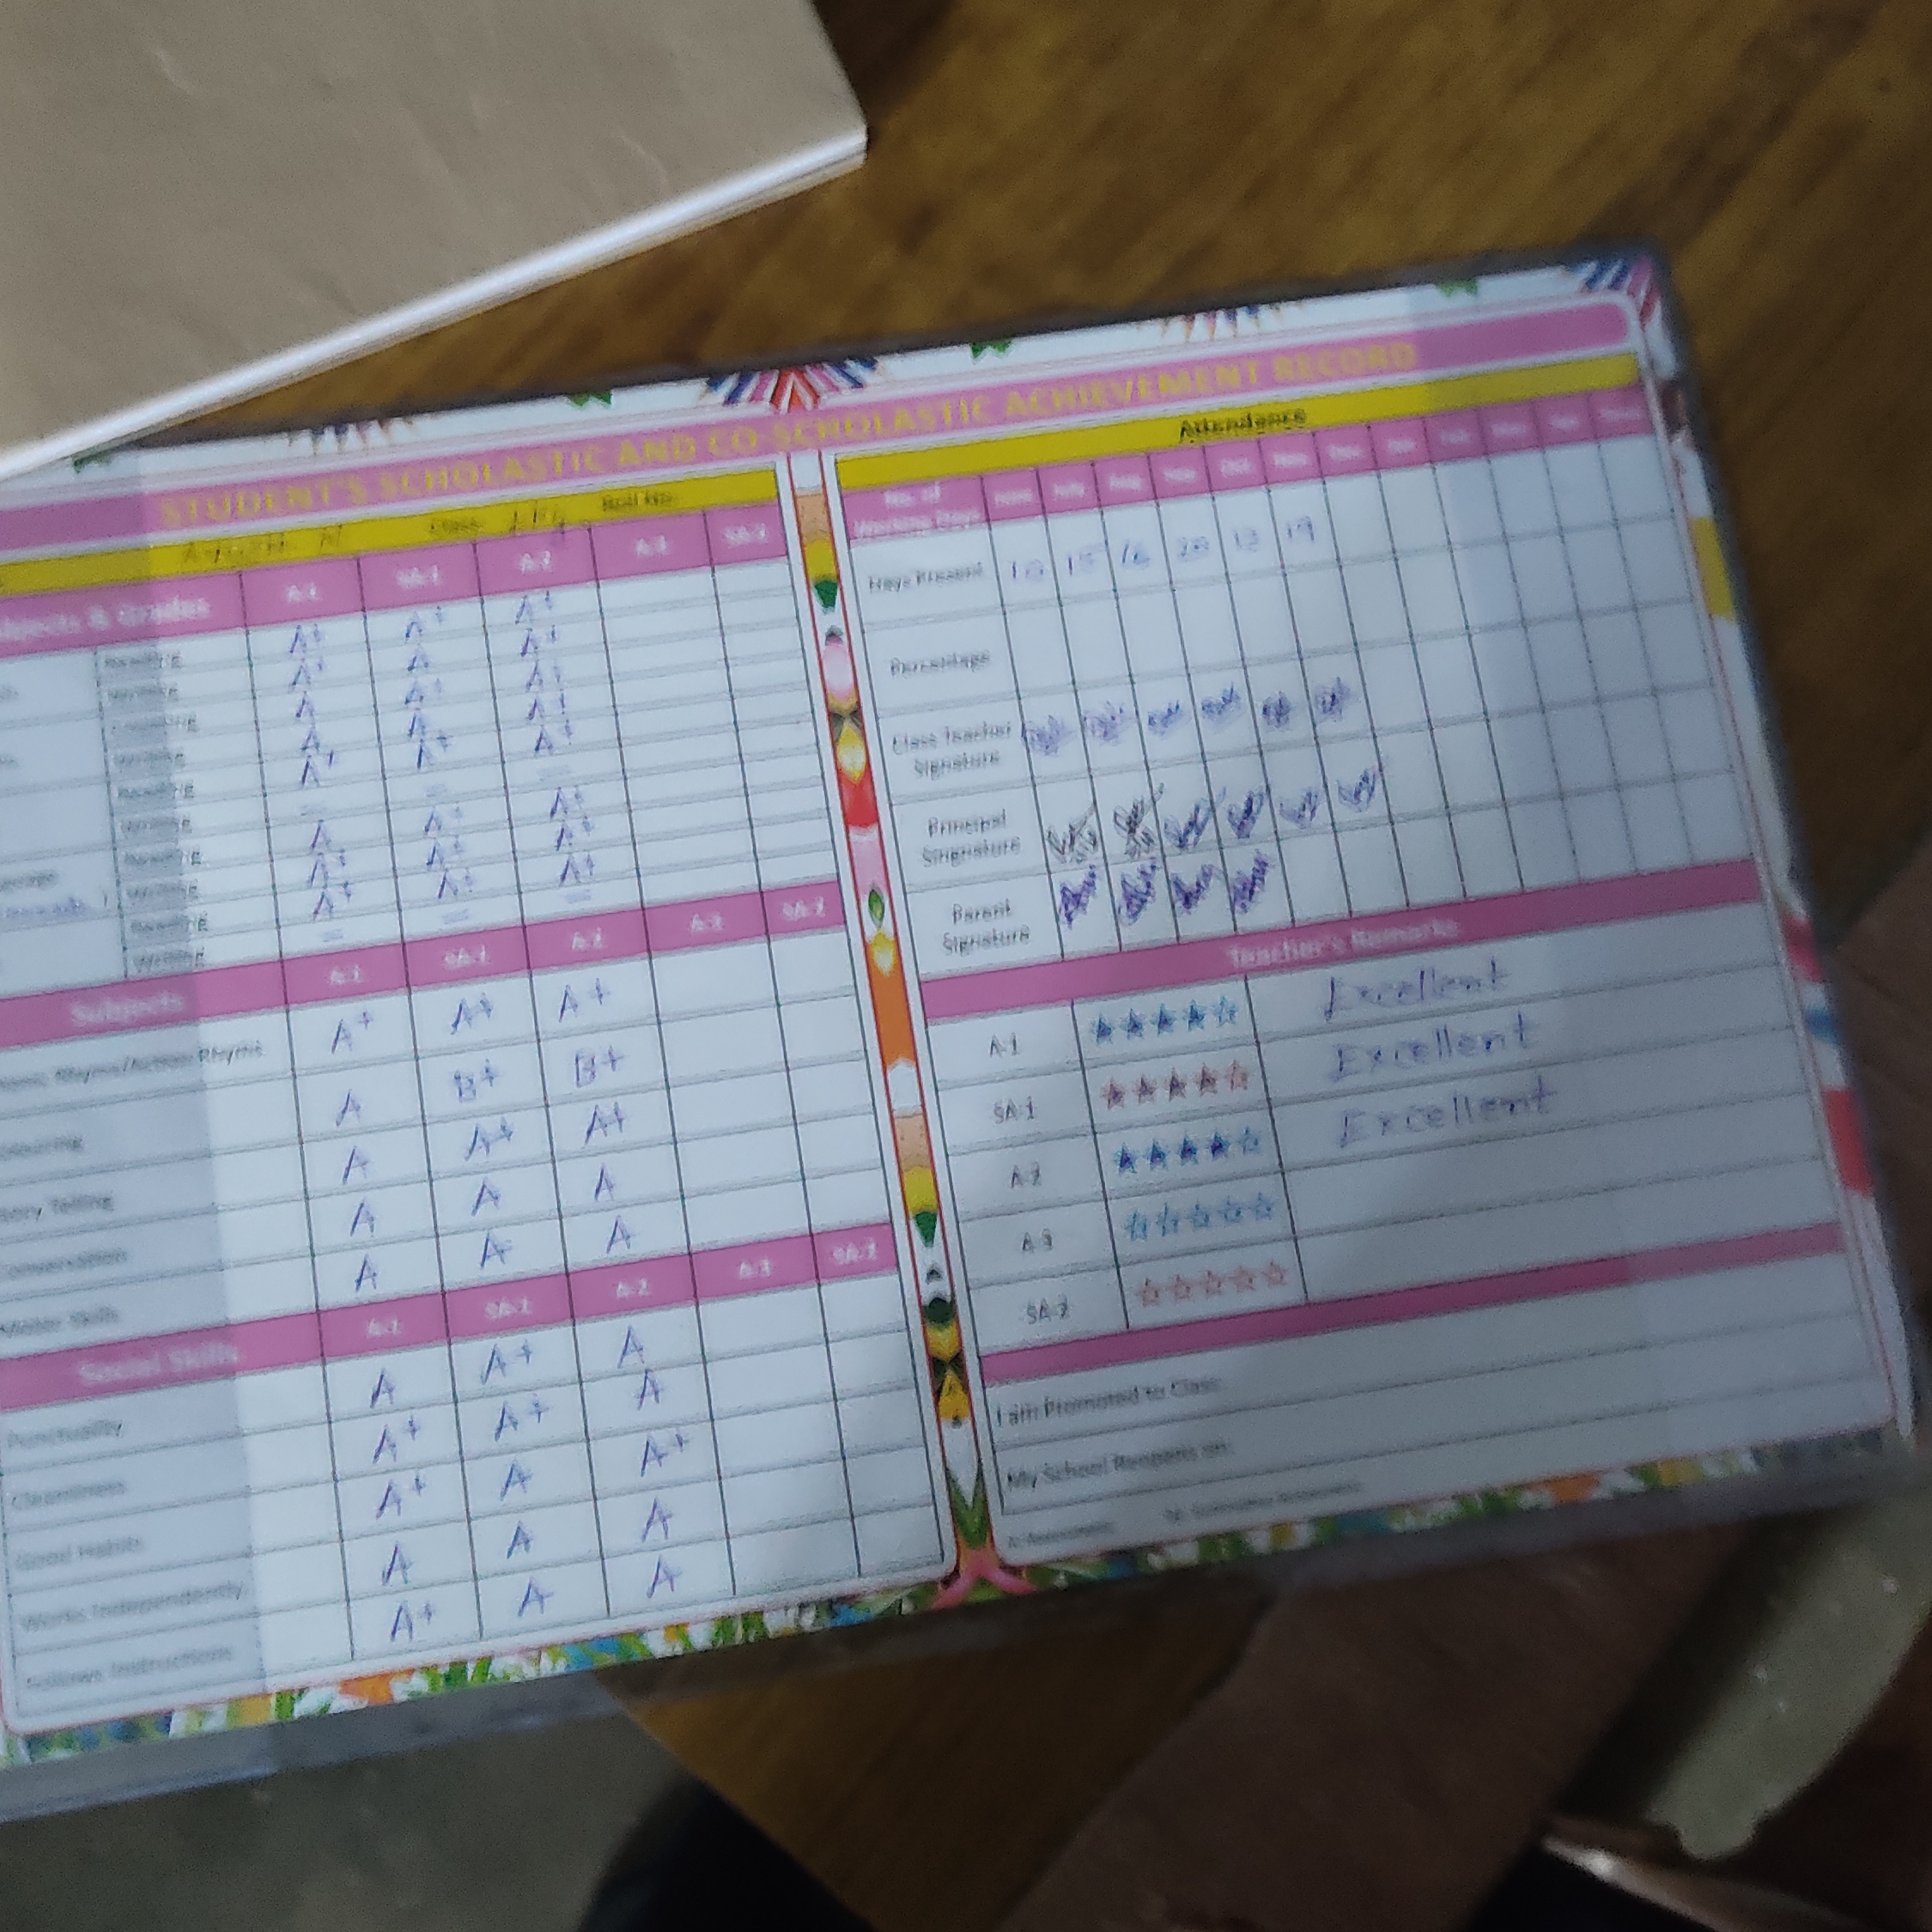 STUDENT'S SCHOLASTIC AND CO-SCHOLASTIC ACHIEVEMENT RECORD
Class Roll No.
Subjects & Grades A-1 SA-1 A-2 A-3 SA-2
Reading A+ A+ A+
Writing A+ A A+
Reading A A+ A+
Writing A A A+
Reading A+ A+ A+
Writing — — —
Reading A A+ A+
Writing A+ A+ A+
Reading A+ A+ A+
Writing — — —
Subjects A-1 SA-1 A-2 A-3 SA-2
Rhyme/Action Rhyme A+ A+ A+
Colouring A B+ B+
Story Telling A A+ A+
Conversation A A A
Motor Skills A A A
Social Skills A-1 SA-1 A-2 A-3 SA-2
Punctuality A A+ A
Cleanliness A+ A+ A
Good Habits A+ A A+
Works Independently A A A
Follows Instructions A+ A A
Attendance
No. of Working Days June July Aug Sep Oct Nov Dec Jan Feb Mar
Days Present 15 16 20 13 19
Percentage
Class Teacher Signature
Principal Singnature
Parent Signature
Teacher's Remarks
A-1 Excellent
SA-1 Excellent
A-2 Excellent
A-3
SA-2
I am Promoted to Class
My School Reopens on:
A: Assessment SA: Summative Assessment